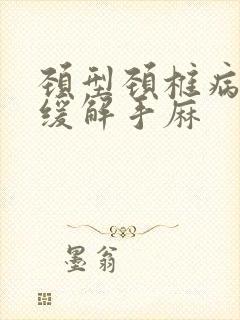 颈型颈椎病
缓解手麻
墨翁